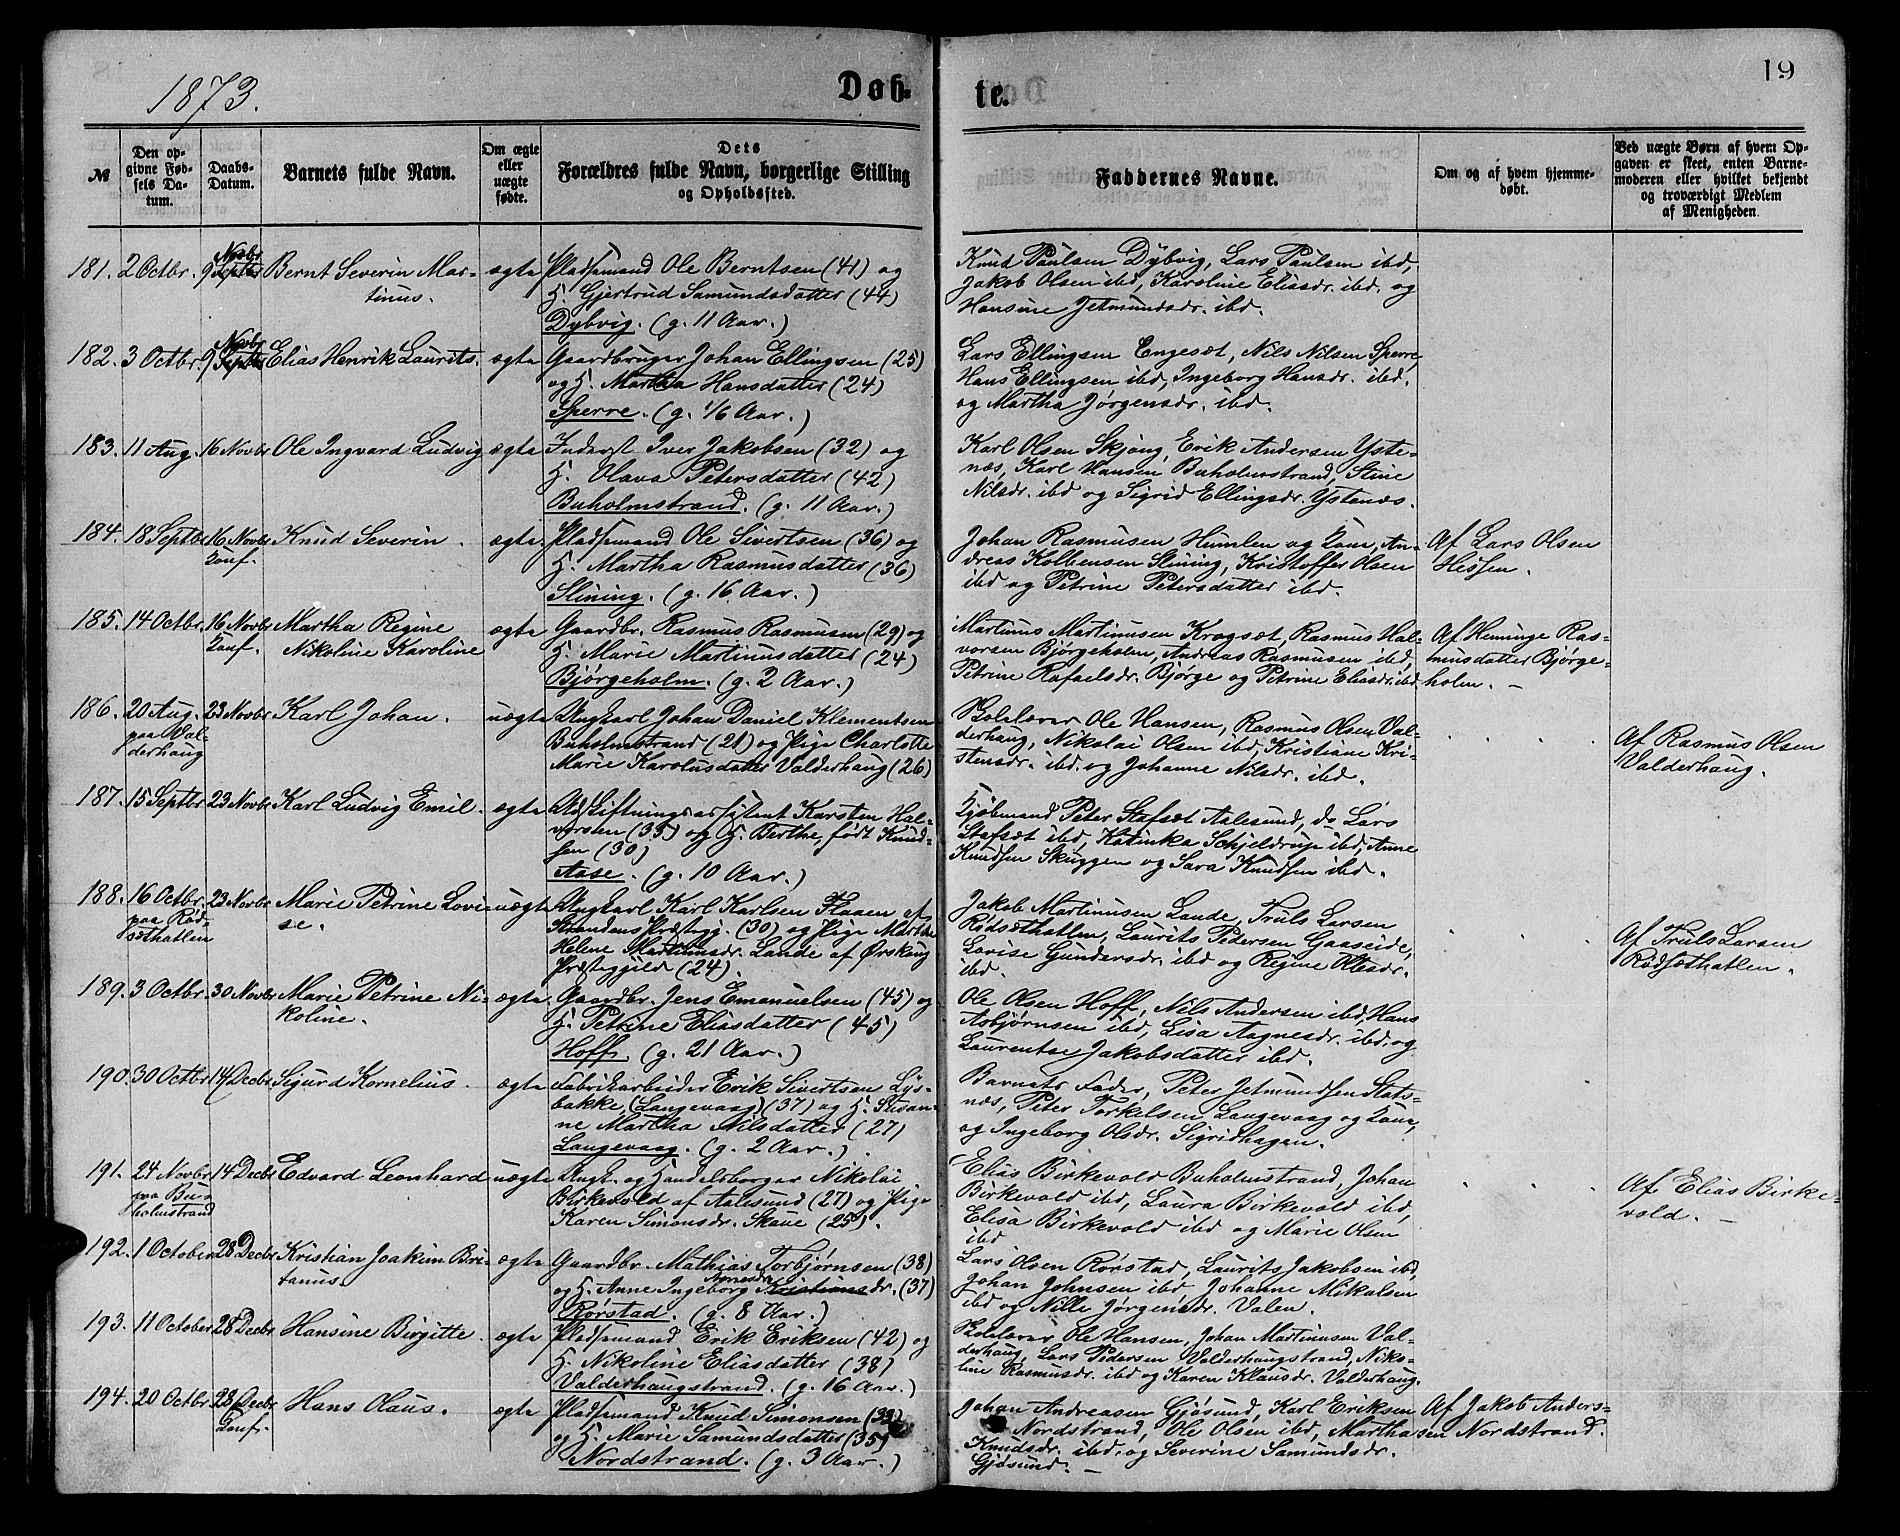 1873.
Døb-
te.
19
№
Den op-
givne Fød-
sels Da-
tum.
Daabs-
Datum.
Barnets fulde Navn.
Om ægte
eller
uægte
fødte.
Dets
Forældres fulde Navn, borgerlige Stilling
og Opholdssted.
Faddernes Navne.
Om og af hvem hjemme-
døbt.
Ved uægte Børn af hvem Op-
gaven er skeet, enten Barne-
moderen eller hvilket bekjendt
og troværdigt Medlem
af Menigheden.
181. 2 Octbr. 9 Septbr Novbr Bernt Severin Mar-
tinus.
ægte
Pladsemand Ole Berntsen (41) og
H. Gjertrud Samundsdatter (44)
Dybvig. (g. 11 Aar.)
Knud Paulsen Dybvig, Lars Paulsen ibd,
Jakob Olsen ibd, Karoline Eliasdr. ibd. og
Hansine Jetmundsdr. ibd.
182. 3 Octbr. 9 Septbr Novbr Elias Henrik Laurits.
ægte
Gaardbruger Johan Ellingsen (25)
og H. Martha Hansdatter (24)
Sperre. (g. 1/6 Aar.)
Lars Ellingsen Engesæt, Nils Nilsen Sperre,
Hans Ellingsen ibd, Ingeborg Hansdr. ibd.
og Martha Jørgensdr. ibd.
183. 11 Aug. 16 Novbr Ole Ingvard Ludvig
ægte
Inderst Iver Jakobsen (32) og
H. Olava Petersdatter (42)
Buholmstrand. (g. 11 Aar.)
Karl Olsen Skjong, Erik Andersen Yste-
næs, Karl Hansen Buholmstrand, Stine
Nilsdr. ibd og Sigrid Ellingsdr. Ystenæs.
184. 18 Septbr 16 Novbr Knud Severin.
Konf.
ægte.
Pladsemand Ole Sivertsen (36) og
H. Martha Rasmusdatter (36)
Slining. (g. 16 Aar.)
Johan Rasmusen Humlen og Kone, An-
dreas Kolbensen Slining, Kristoffer Olsen
ibd og Petrine Petersdatter ibd.
Af Lars Olsen
Hessen.
185. 14 Octbr. 16 Novbr Martha Regine
Konf. Nikoline Karoline
ægte
Gaardbr. Rasmus Rasmusen (29) og
H. Marie Martinusdatter (24)
Bjørgeholm. (g. 2 Aar.)
Martinus Martinusen Krogsæt, Rasmus Hal-
vorsen Bjørgeholm, Andreas Rasmusen ibd,
Petrine Rafaelsdr. Bjørge og Petrine Eliasdr. ibd.
Af Henninge Ras-
musdatter Bjørge-
holm. —
186. 20 Aug. 23 Novbr Karl Johan.
paa Val-
derhaug
uægte
Ungkarl Johan Daniel Klementsen
Buholmstrand (21) og Pige Charlotte
Marie Karolusdatter Valderhaug (26)
Skolelærer Ole Hansen, Rasmus Olsen Val-
derhaug, Nikolai Olsen ibd, Kristiane Kri-
stensdr. ibd. og Johanne Nilsdr. ibd.
Af Rasmus Olsen
Valderhaug.
187. 15 Septbr 23 Novbr Karl Ludvig Emil.
ægte
Udskiftningsassistent Karsten Hal-
vorsten (35) og H. Berthe, født Knud-
sen (30)
Aase. (g. 10 Aar.)
Kjøbmand Peter Stafsæt Aalesund, do Lars
Stafsæt ibd, Katinka Schjeldrup ibd, Anne
Knudsen Skuggen og Sara Knudsen ibd.
188. 16 Octbr. 23 Novbr. Marie Petrine Lovi-
paa Rød- se.
sæthatlen
uægte
Ungkarl Karl Karlsen Flaaen af
Strandens Præstegj. (30) og Pige Marthe
Helene Martinusdr. Lande af Ørskoug
Præstegjeld (24).
Jakob Martinusen Lande, Truls Larsen
Rødsæthatlen, Laurits Pedersen Gaaseide,
Lovise Gundersdr. ibd og Regine Olesdr.
ibd.
Af Truls Larsen
Rødsæthatlen.
189. 3 Octbr. 30 Novbr Marie Petrine Ni-
koline.
ægte
Gaardbr. Jens Emanuelsen (45) og
H. Petrine Eliasdatter (45)
Hoff. (g. 21 Aar.)
Ole Olsen Hoff, Nils Andersen ibd, Hans
Asbjørnsen ibd, Lisa Aagnesdr. ibd. og
Laurentse Jakobsdatter ibd.
190. 30 Octbr 14 Decbr Sigurd Kornelius.
ægte
Fabrikarbeider Erik Sivertsen Lys-
bakke (Langevaag) (37) og H. Susan-
ne Martha Nilsdatter (27)
Langevaag. (g. 2 Aar.)
Barnets Fader, Peter Jetmundsen Slats-
næs, Peter Torkelsen Langevaag og Kone,
og Ingeborg Olsdr. Sigridhagen.
191. 24 Novbr 14 Decbr Edvard Leonhard
paa Bu-
holmstrand
uægte
Ungk. og Handelsborger Nikolai
Birkevold af Aalesund (27) og Pige
Karen Simonsdr. Skaue (25).
Elias Birkevold Buholmstrand, Johan
Birkevold ibd, Laura Birkevold ibd,
Elisa Birkevold ibd og Marie Olsen
ibd
Af Elias Birke-
vold. —
192. 1 October 28 Decbr Kristian Joakim Bri-
tanus
ægte
Gaardbr. Mathias Torbjørnsen (38)
og H. Anne Ingeborg Kristiansdr. (37)
Rørstad. (g. 8 Aar.)
Lars Olsen Rørstad, Laurits Jakobsen ibd,
Johan Johnsen ibd Johanne Mikalsen
ibd og Nille Jørgensdr. Valen.
193. 11 October 28 Decbr Hansine Birgitte.
ægte
Pladsemand Erik Eriksen (42) og
H. Nikoline Eliasdatter (38)
Valderhaugstrand. (g. 16 Aar.)
Skolelærer Ole Hansen, Johan Martinusen Val-
derhaug, Lars Pedersen Valderhaugstrand, Niko-
line Rasmusdr. ibd og Karen Klausdr. Valderhaug.
194. 20 Octbr 28 Decbr. Hans Olaus.
Konf.
ægte
Pladsemand Knud Simonsen (33)
og H. Marie Samundsdatter (35)
Nordstrand. (g. 3 Aar.)
Johan Andreasen Gjøsund, Karl Eriksen
Nordstrand, Ole Olsen ibd, Martha
Knudsdr. ibd. og Severine Samundsdr.
Gjøsund. —
Af Jakob Anders-
sen Nordstrand.